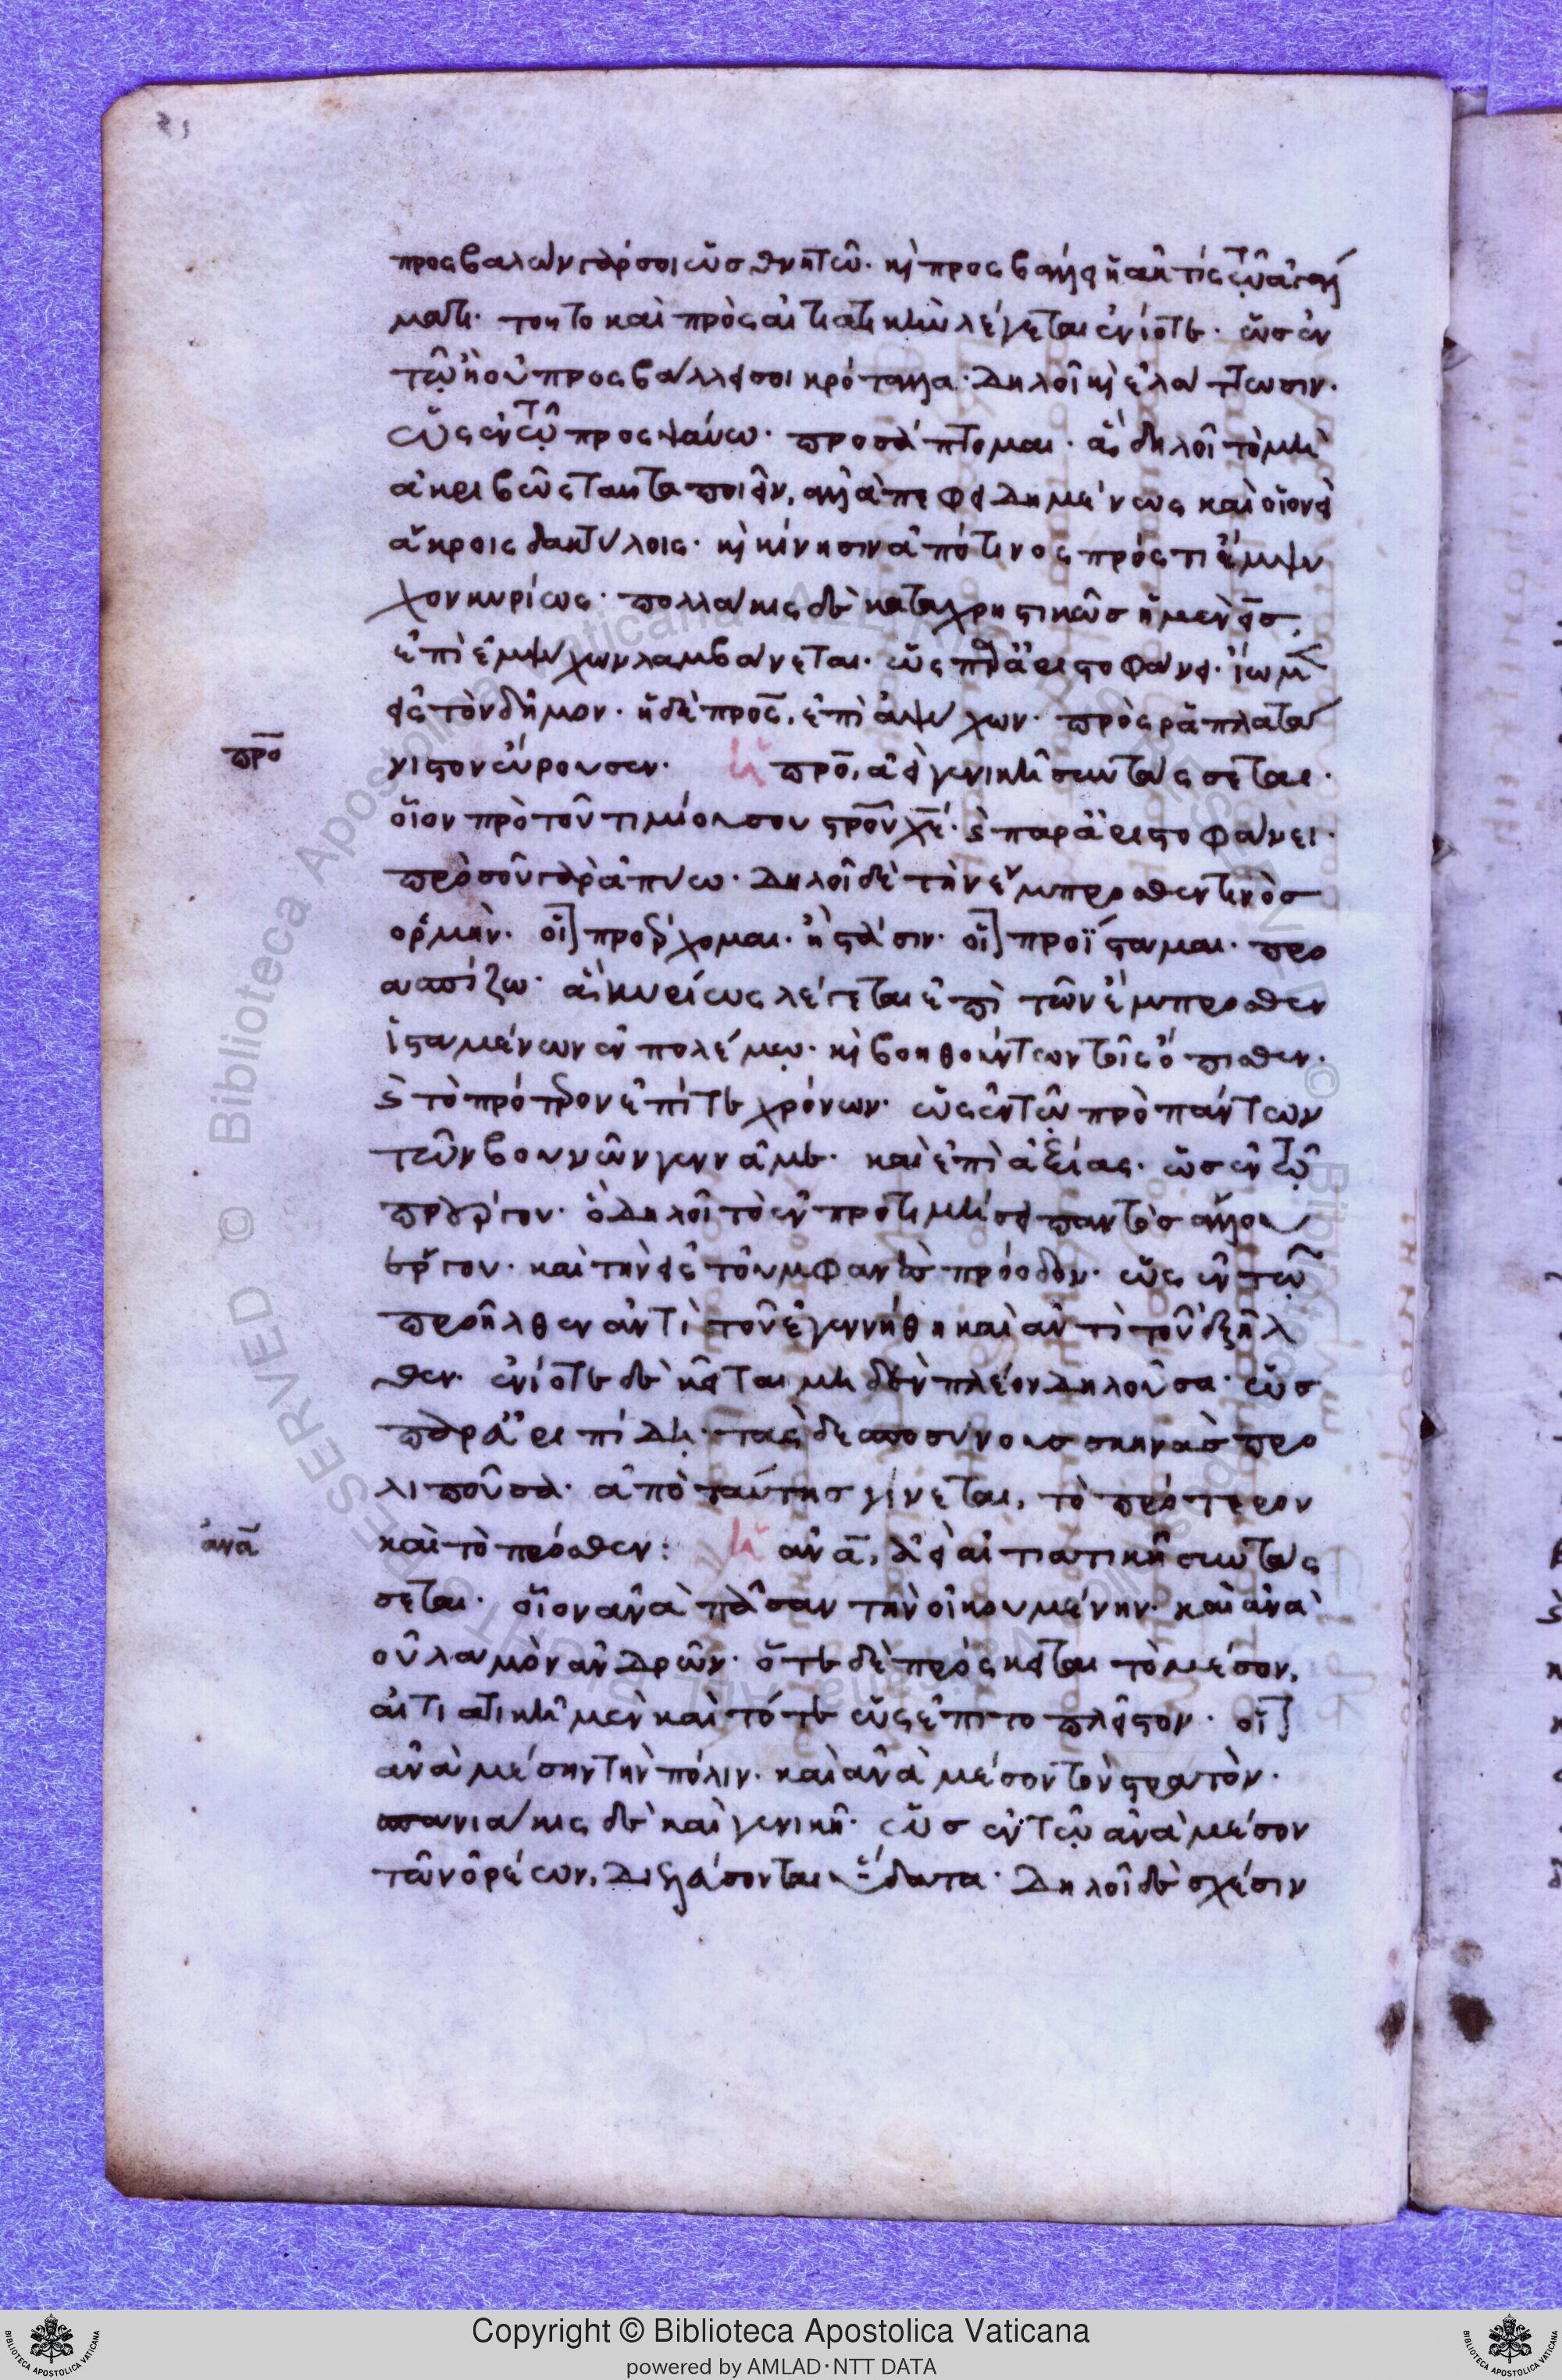 προσβαλὼν γάρ σοι ὡς θνητῷ· κὶ προσβαλεῖς ἢ ἀκτὶς τῷ ἀγάλ
ματι· τοῦτο καὶ πρὸς αἰτιατικὴν λέγεται ἐνίοτε· ὡς ἐν
τῷ ἢ οὐ προσβάλλει σοι κρόταλα· δηλοῖ κὶ ἐλάττωσιν·
ὡς ἐν τῷ προσψαύω· προσάπτομαι· ἃ δηλοῖ τὸ μὴ
ἀκριβῶς ταῦτα ποιεῖν, ἀλλ' ἀπεφειδημένως καὶ οἱονεὶ
ἄκροις δακτύλοις· κὶ κίνησιν ἀπό τινος πρός τι ἔμψυ
χον κυρίως· πολλάκις δὲ καταχρηστικῶς ἡ μὲν εἰς,
ἐπὶ ἐμψύχων λαμβάνεται· ὡς παρὰ ἀριστοφάνει· ἴωμ
εἰς τὸν δῆμον· ἡ δὲ πρός, ἐπὶ ἀψύχων· πρός ῥα πλατά
πρὸ
νιστον εὔρουσεν· ἡ πρό, ἀεὶ γενικῇ συντάσσεται·
οἷον πρὸ τοῦ τιμίου σου στροῦ χέ· κὶ παρὰ ἀριστοφάνει·
πρὸ σοῦ γὰρ ἀπνέω· δηλοῖ δὲ τὴν ἔμπροσθεν τινὸς
ὁρμὴν· οἷον προέρχομαι· ἢ στάσιν· οἷον προΐσταμαι· προ
ασπίζω· ἃ κυρίως λέγεται ἐπὶ τῶν ἔμπροσθεν
ἱσταμένων ἐν πολέμῳ· κὶ βοηθούντων τοῖς ὄπισθεν·
κὶ τὸ πρότερον ἐπί τε χρόνων· ὡς ἐν τῷ πρὸ πάντων
τῶν βουνῶν γεννᾷ με· καὶ ἐπὶ ἀξίας· ὡς ἐν τῷ
προὔργου· ὃ δηλοῖ τὸ ἐν προτιμήσει παντὸς ἄλλου
ἔργου· καὶ τὴν εἰς τοὐμφανὲς πρόοδον· ὡς ἐν τῷ
προῆλθεν ἀντὶ τοῦ ἐγεννήθη καὶ ἀντὶ τοῦ ἐξῆλ
θεν· ἐνίοτε δὲ κεῖται μηδὲν πλέον δηλοῦσα· ὡς
παρὰ εὐριπίδῃ· τὰς δεσποσύνους σκηνὰς προ
λιποῦσα· ἀπὸ ταύτης γίνεται, τὸ πρότερον
ἀνὰ
καὶ τὸ πρόσθεν: ἡ ἀνά, ἀεὶ αἰτιατικῇ συντάσ
σεται· οἷον ἀνὰ πᾶσαν τὴν οἰκουμένην· καὶ ἀνὰ
οὐλαμὸν ἀνδρῶν· ὅτε δὲ πρόσκειται τὸ μέσον,
αἰτιατικῇ μὲν καὶ τότε ὡς ἐπὶ το πλεῖστον· οἷον
ἀνὰ μέσην τὴν πόλιν· καὶ ἀνὰ μέσον τὸν στρατὸν·
σπανιάκις δὲ καὶ γενικῇ· ὡς ἐν τῷ ἀνὰ μέσον
τῶν ὀρέων, διελεύσονται ὕδατα· δηλοῖ δὲ σχέσιν
Copyright © Biblioteca Apostolica Vaticana
powered by AMLAD·NTT DATA